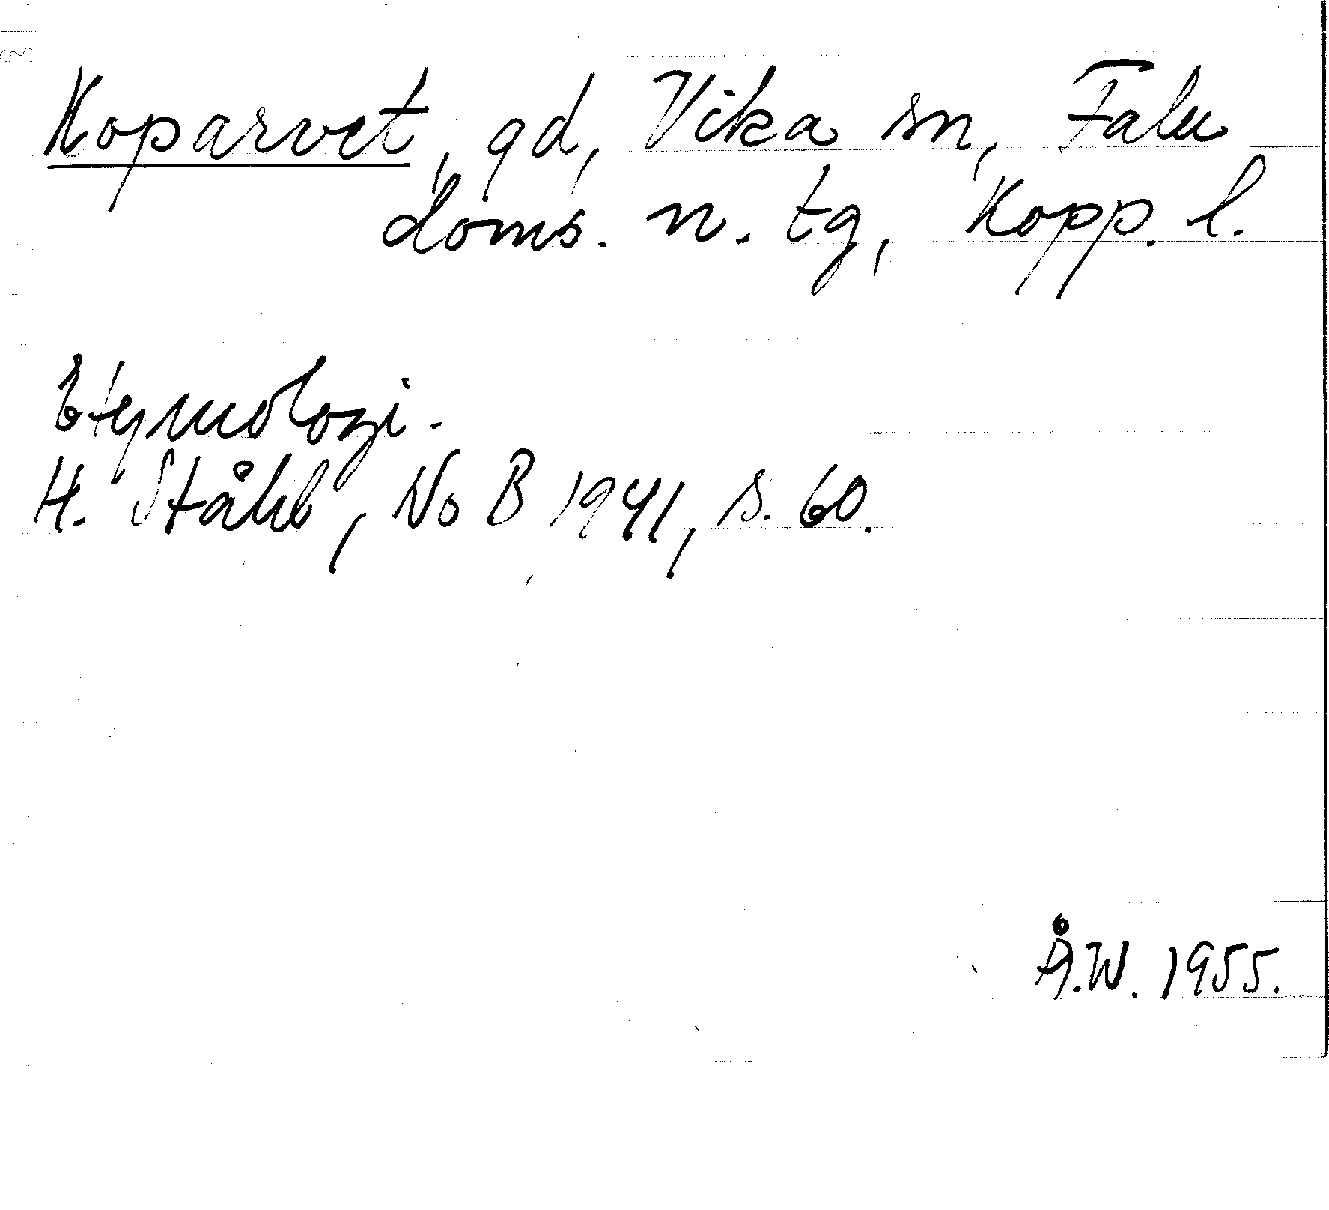 Koparvet, gd, Vika sn, Falu
doms. n. tg, Kopp. l.
Etymologi.
H. Ståhl, No B 1941, s. 60.
Å.W. 1955.